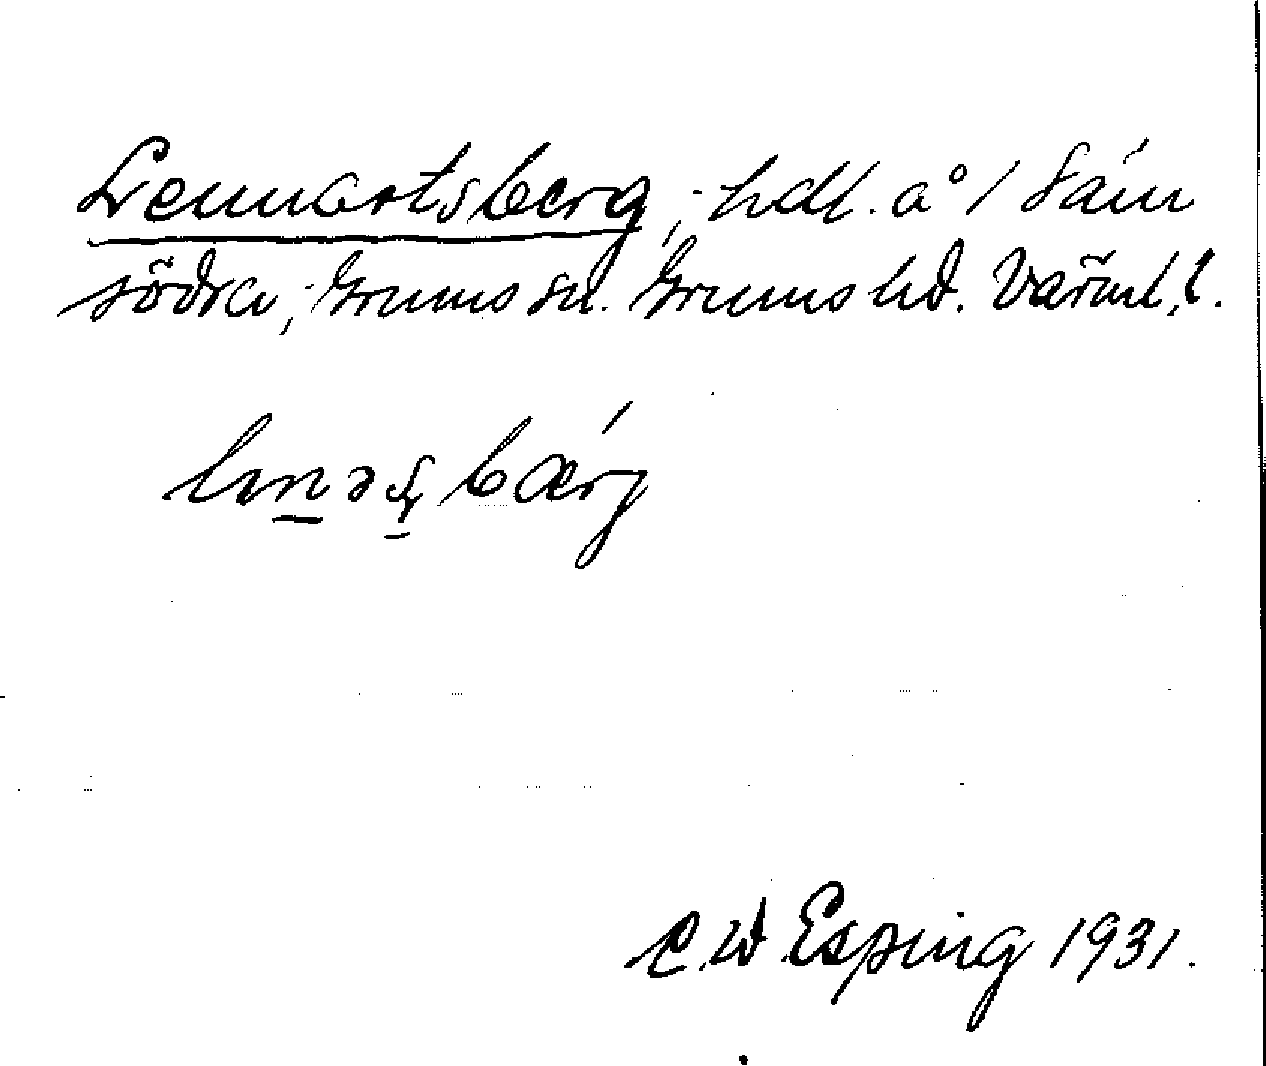 Lennartsberg, - hdl. å 1 Säm
södra, - Grums sn. Grums hd. Värml. l.
C. W Esping 1931.